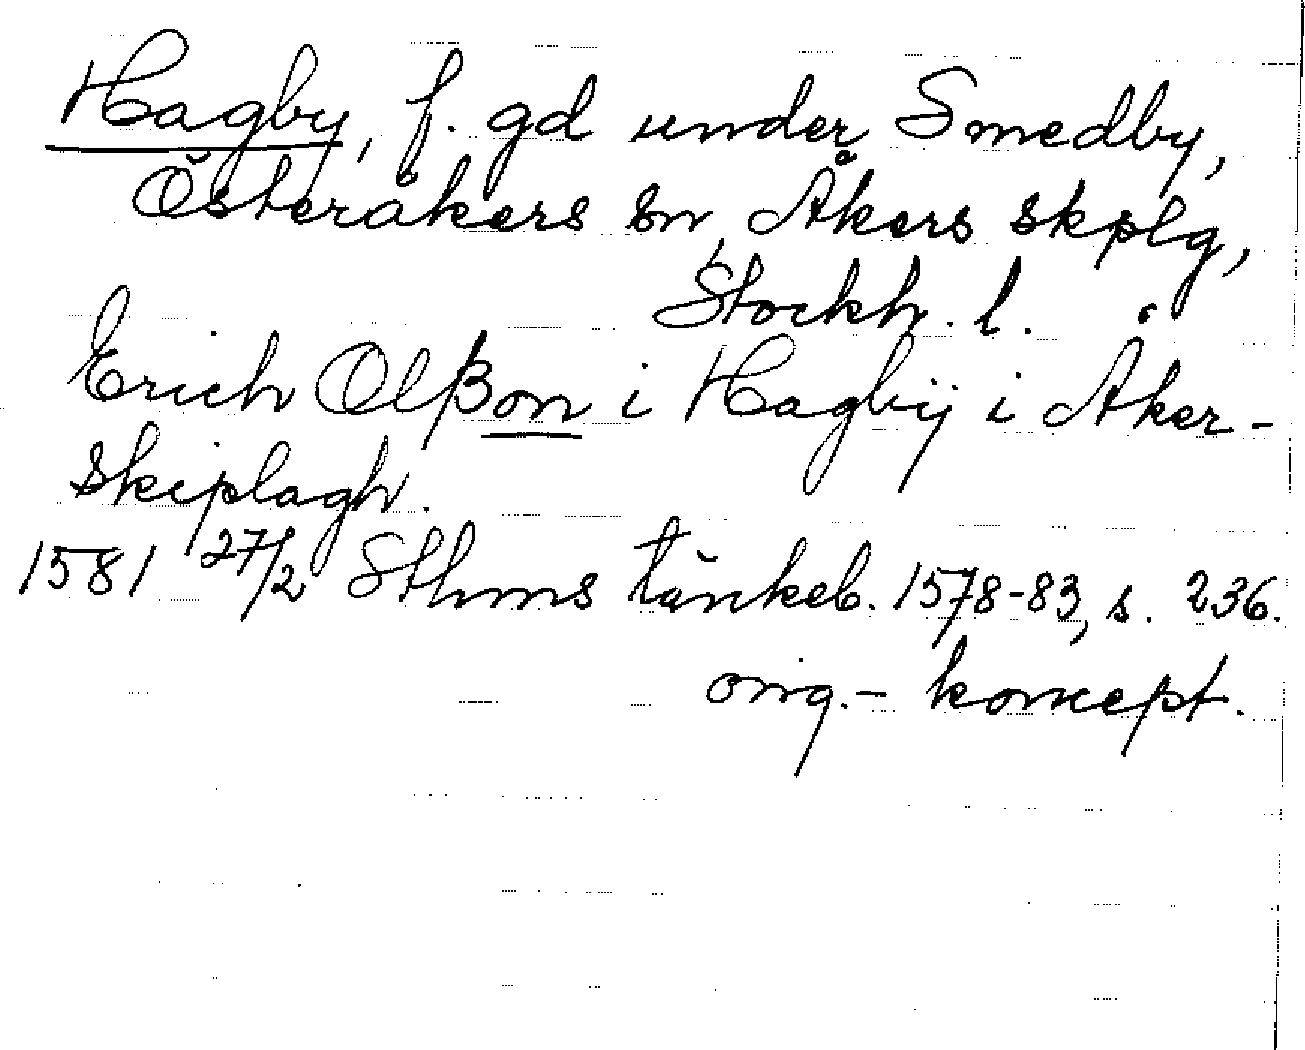 Hagby, f. gd under Smedby,
Österåkers sn, Åkers skplg,
Stockh. l.
Erich Olßon i Hagbÿ i Åker-
skiplagh.
1581 27/2 Sthms tänkeb. 1578-83, s. 236.
orig.- koncept.